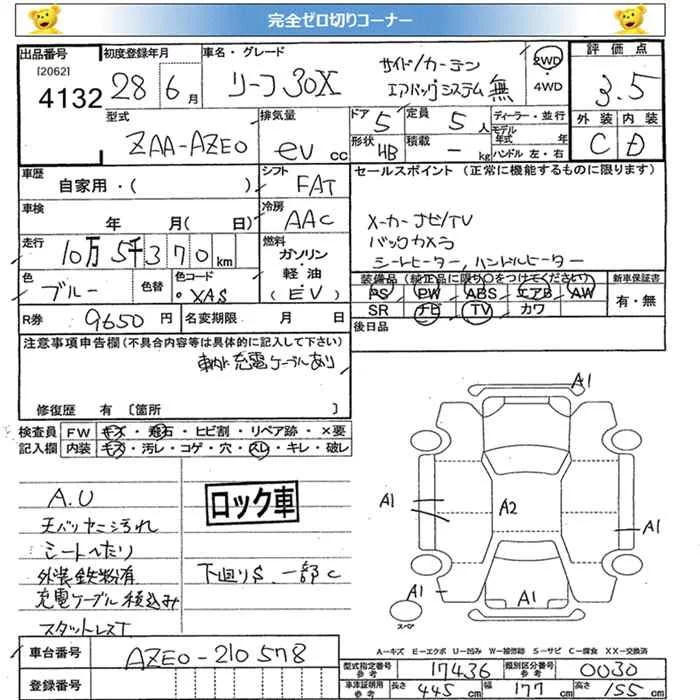 完全ゼロ切りコーナー
出品番号 [2062] 4132
初度登録年月 28 6月
車名・グレード リーフ 30X サイド/カーテン エアバッグシステム 無
2WD・4WD
評価点 3.5
外装 C 内装 D
型式 ZAA-AZEO
排気量 eV cc
ドア 5 形状 HB
定員 5人 積載 - kg
ディーラー・並行
モデル年式 年
ハンドル 左・右
車歴 自家用・( )
シフト FAT
セールスポイント (正常に機能するものに限ります)
車検 年 月( 日)
冷房 AAC
メーカーナビ/TV
バックカメラ
シートヒーター, ハンドルヒーター
走行 10万 5千 370 km
燃料 ガソリン・軽油 (EV)
色 ブルー 色替
色コード ・XAS
装備品 (純正品に限り○をつけてください)
PS PW ABS エアB AW
SR ナビ TV カワ
新車保証書 有・無
R券 9650円
名変期限 月 日
後日品
注意事項申告欄 (不具合内容等は具体的に記入して下さい)
車内に充電ケーブルあり
修復歴 有 [箇所 ]
検査員 FW キズ・飛石・ヒビ割・リペア跡・×要
記入欄 内装 キズ・汚レ・コゲ・穴・スレ・キレ・破レ
A.U
天バリヤニ汚れ
シートヘたり
外装鉄粉有
充電ケーブル積込み
スタットレスT
ロック車
下廻りS. 一部C
A1
A1
A2
A1
A1
A1
スペア
A-キズ E-エクボ U-凹み W-補修跡 S-サビ C-腐食 XX-交換済
車台番号 AZEO-210578
登録番号
型式指定番号 参考 17436
類別区分番号 参考 0030
車庫証明用 参考 長さ 445cm 幅 177cm 高さ 155cm